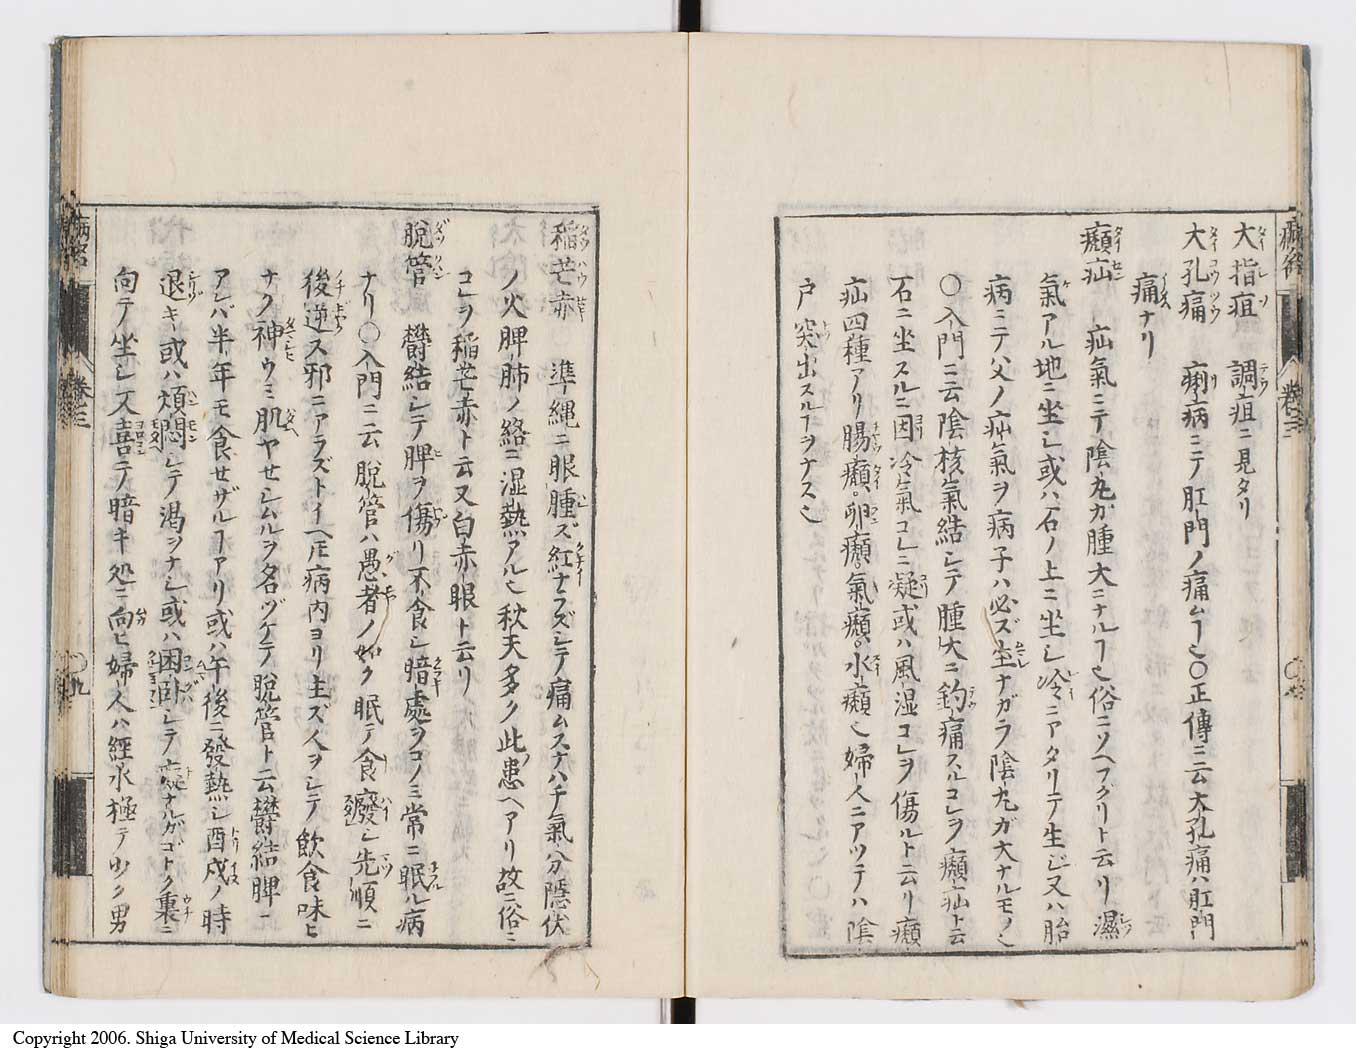 大指疽 調疽ニ見タリ
大孔痛 痢病ニテ肛門ノ痛ムヿ也〇正傳ニ云大孔痛ハ肛門
痛ナリ
癩疝 疝氣ニテ陰丸ガ腫大ニナルヿ也俗ニソヘフグリト云リ濕
氣アル地ニ坐シ或ハ石ノ上ニ坐シ冷ニアタリテ生ジ又ハ胎
病ニテ父ノ疝氣ヲ病子ハ必ズ生ナガラ陰丸ガ大ナルモノ也
〇入門ニ云陰核氣結シテ腫大ニ釣痛スルコレヲ癩疝ト云
石ニ坐スルニ因冷氣コレニ凝或ハ風湿コレヲ傷ルト云リ癩
疝四種アリ腸癩卵癩氣癩水癩也婦人ニアツテハ陰
戸突出スルヿヲナス也
稲芒赤 準縄ニ眼腫ズ紅ナラズシテ痛ムスナハチ氣分隠伏
ノ火脾肺ノ絡ニ湿熱アル也秋夫多ク此患ヘアリ故ニ俗ニ
コレヲ稲芒赤ト云又白赤眼ト云リ
脱管 欝結シテ脾ヲ傷リ不食シ暗處ヲコノミ常ニ眠ル病
ナリ〇入門ニ云脱管ハ愚者ノ如ク眠テ食癈シ先順ニ
後逆ス邪ニアラズトイヘ𪜈病内ヨリ生ズ人ヲシテ飲食味ヒ
ナク神ウミ肌ヤせシムルヲ名ヅケテ脱管ト云欝結脾ニ
アレバ半年モ食せザルヿアリ或ハ午後ニ發熱シ酉戌ノ時
退キ或ハ煩悶シテ渇ヲナシ或ハ困臥シテ癡ナルガゴトク裏ニ
向テ坐シ又喜テ暗キ処ニ向ヒ婦人ハ經水極テ少ク男
巻三
巻三
〇九
Copyright 2006. Shiga University of Medical Science Library